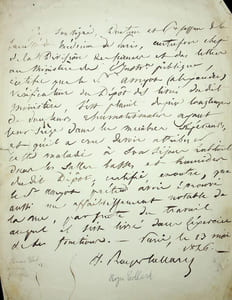 Je soussigné, Docteur et Professeur de la
faculté de médecine de Paris, certifie
de la 4e Division des sciences et des lettres
au Ministère de l'instr. publique
certifie que le Sr amyot (alexandre)
vérificateur du Dépôt des livres du dit
Ministère, s'est plaint depuis longtemps
de douleurs rhumatismales ayant
leur siège dans les membres
et qu'il a cru devoir attribuer
cette maladie à son séjour habituel
dans les salles basses et humides
du dit Dépôt, certifie, en outre, que
le Sr amyot prétend avoir éprouvé
aussi un affaiblissement notable de
la vue, par suite du travail
auquel il s'est livré dans l'exercice
de ses fonctions. — Paris, le 13 mai
H. Royer Collard
Royer Collard